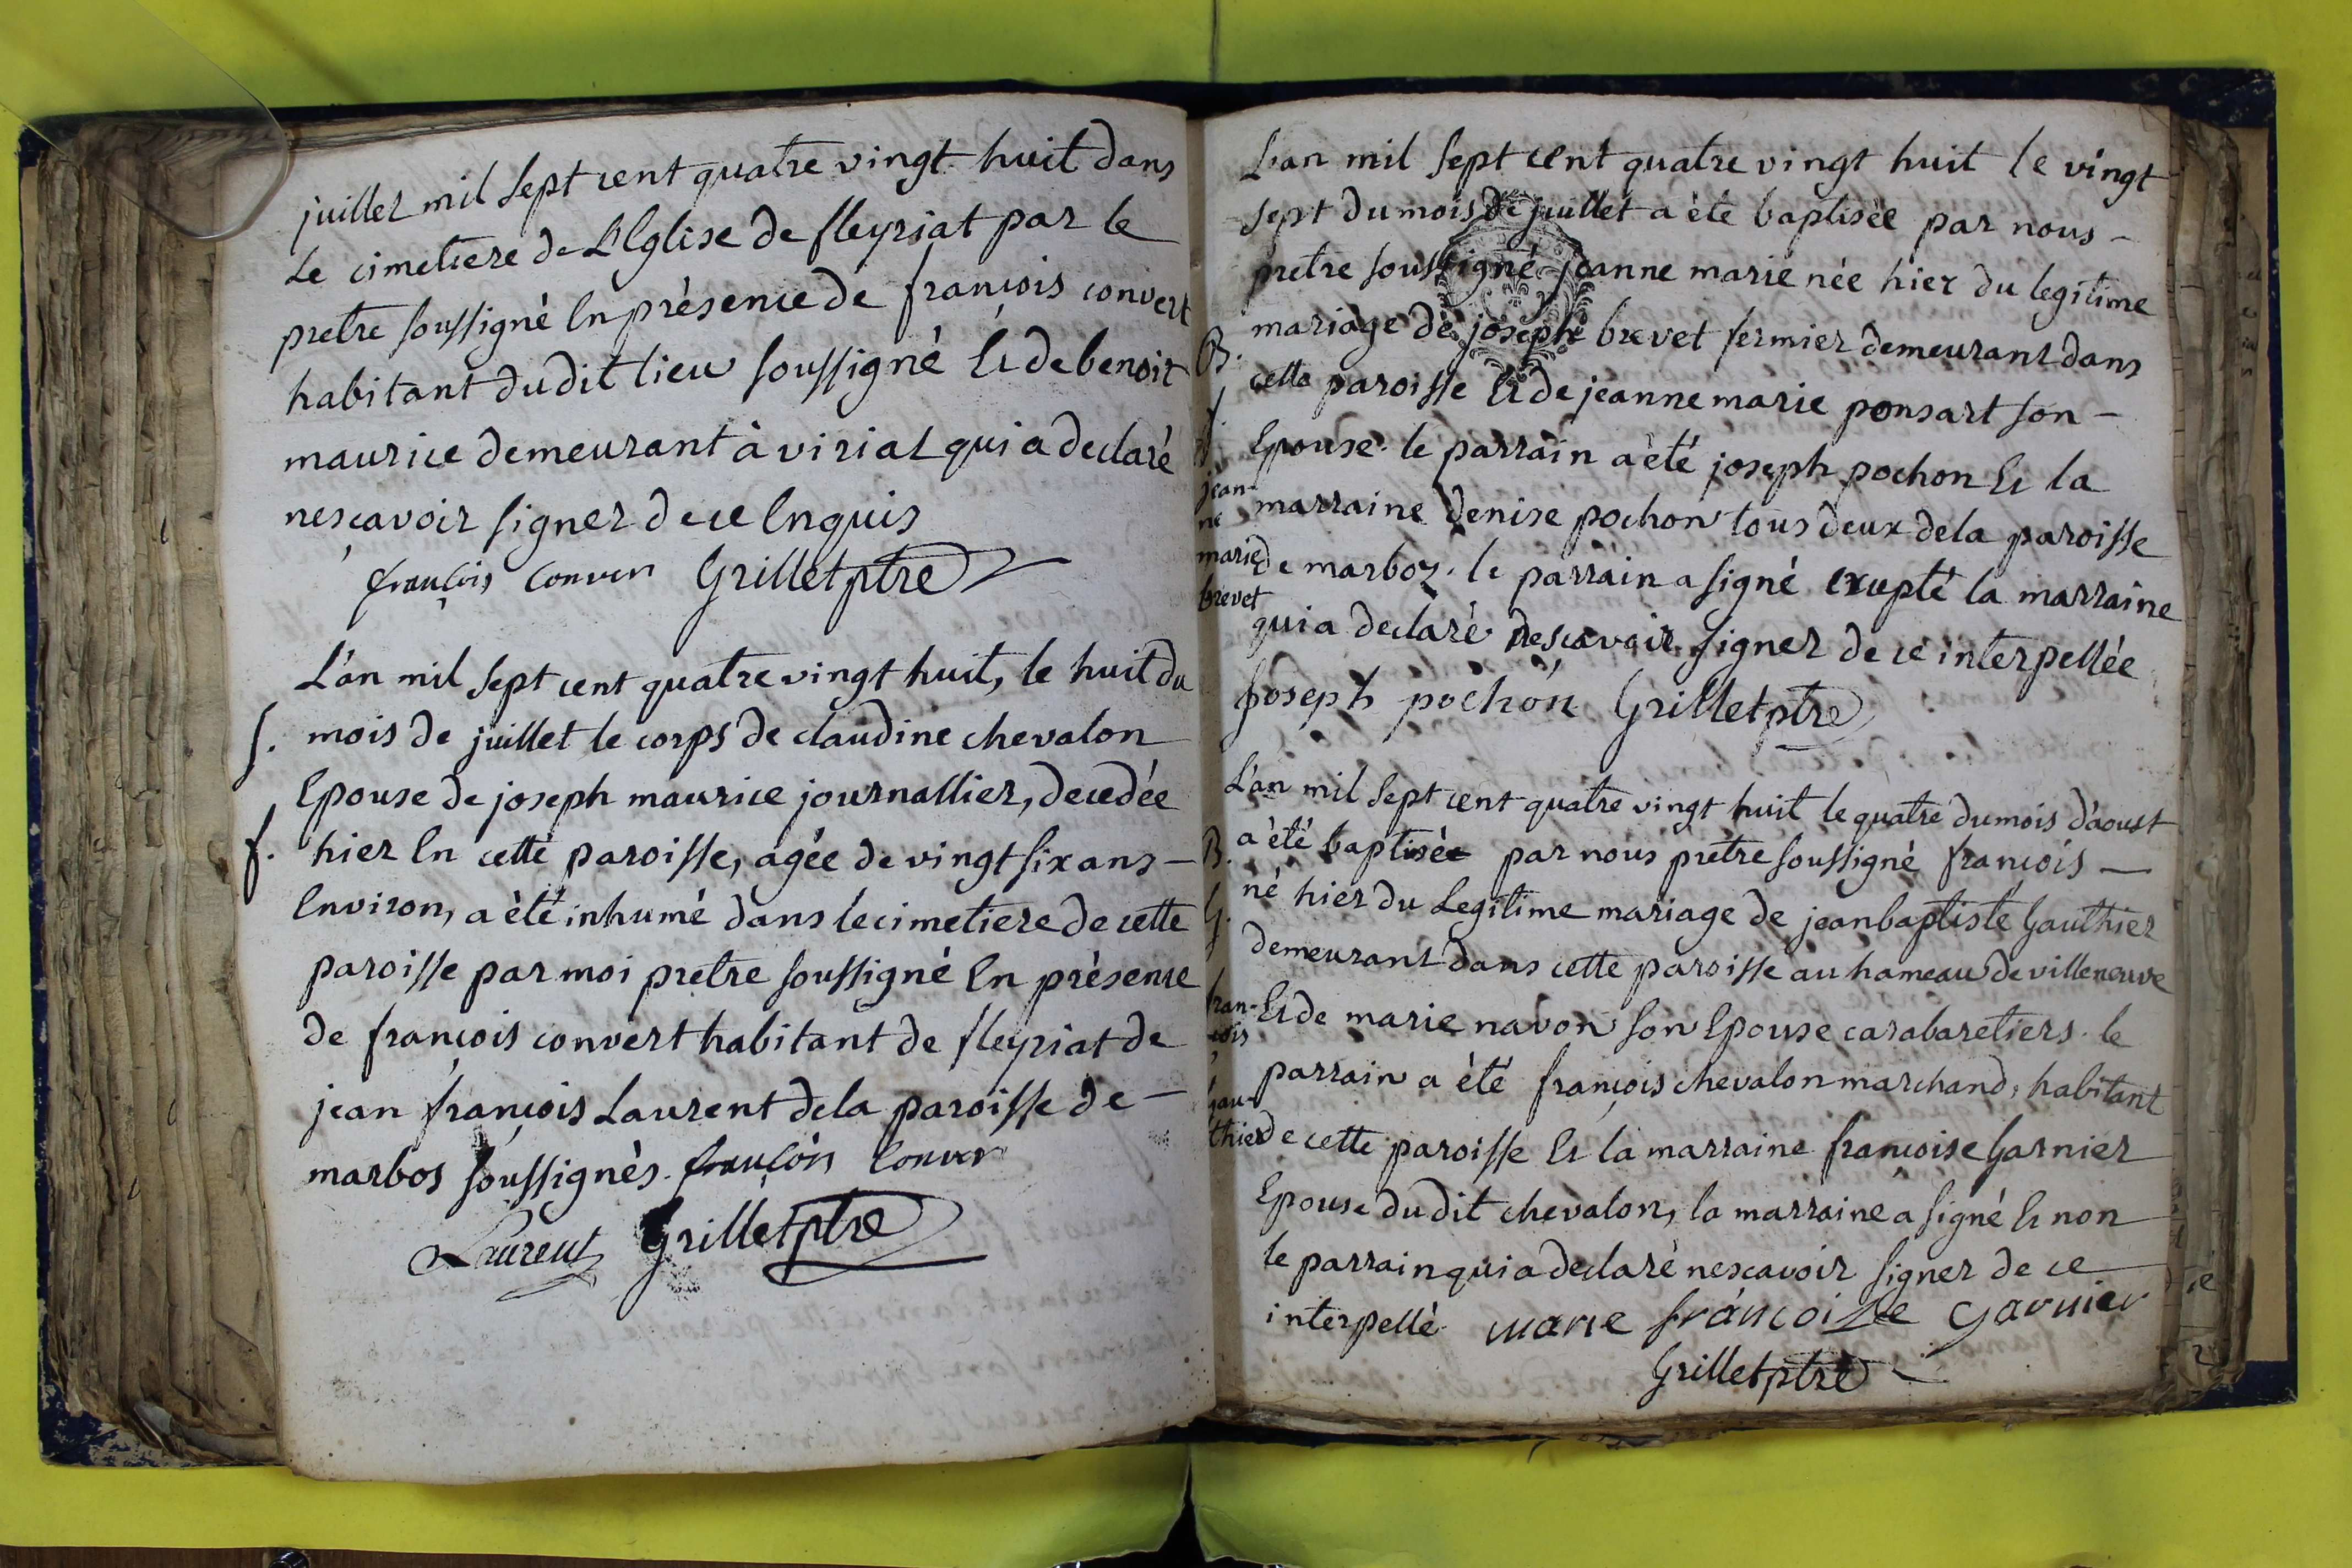 juillet mil sept cent quatre vingt huit dans
Le cimetiere de L'Eglise de fleyriat par le
pretre soussigné En présence de françois convert
habitant du dit lieu soussigné Et de benoit
maurice demeurant à viriat qui a declaré
ne scavoir signer de ce Enquis
françois Conver Grillet ptre
L'an mil sept cent quatre vingt huit, le huit du
S. mois de juillet le corps de claudine chevalon
Epouse de joseph maurice journallier, decedée
f. hier En cette paroisse, agée de vingt six ans –
Environ, a èté inhumé dans le cimetiere de cette
paroisse par moi pretre soussigné En présence
de françois convert habitant de fleyriat de
jean françois Laurent de la paroisse de –
marbos soussignès. françois Conver
Laurent Grillet ptre
L'an mil sept cent quatre vingt huit le vingt
sept du mois de juillet a èté baptisée par nous –
pretre soussigné jeanne marie née hier du legitime
mariage de joseph brevet fermier demeurant dans
B.
cette paroisse Et de jeanne marie ponsart son –
f.
Epouse. le parrain a èté joseph pochon Et la
jean-
marraine denise pochon tous deux de la paroisse
ne
marie
de marboz. le parrain a signé excepté la marraine
brevet
qui a declaré ne scavoir signer de ce interpellée
joseph pochon Grillet ptre
L'an mil sept cent quatre vingt huit le quatre du mois d'aoust
B. a èté baptisée par nous pretre soussigné françois —
G. né hier du Legitime mariage de jean baptiste Gauthier
demeurant dans cette paroisse au hameau de villeneuve
fran-
Et de marie navon son Epouse carabaretiers. le
cois
parrain a èté françois chevalon marchand, habitant
gau-
thier
de cette paroisse Et la marraine françoise Garnier
Epouse du dit chevalon, la marraine a signé Et non
le parrain qui a declaré ne scavoir signer de ce
interpellè. marie françoise garnier
Grillet ptre